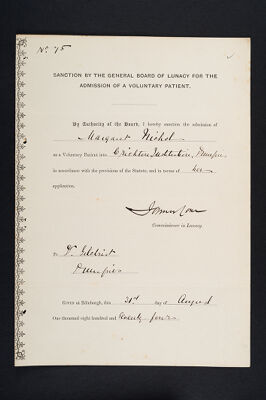 No. 75
SANCTION BY THE GENERAL BOARD OF LUNACY FOR THE
ADMISSION OF A VOLUNTARY PATIENT.
By Authority of the Board, I hereby sanction the admission of
Margaret Nichol
as a Voluntary Patient into Crichton Institution, Dumfries
in accordance with the provisions of the Statute, and in terms of her
application.
Commissioner in Lunacy.
To Dr. Gilchrist
Dumfries
GIVEN at Edinburgh, this 31st day of August
One thousand eight hundred and seventy four